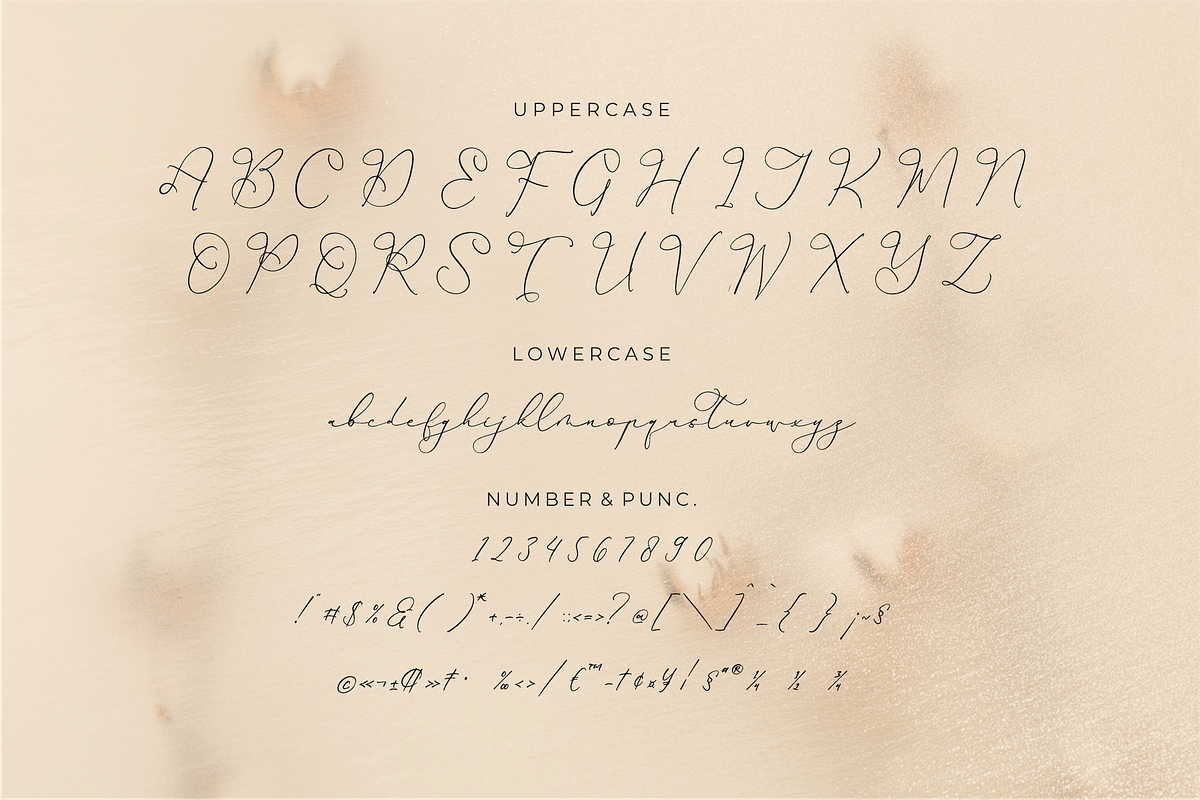 UPPERCASE
A B C D E F G H I J K M N
O P Q R S T U V W X Y Z
LOWERCASE
abcdefghijklmnopqrstuvwxyz
NUMBER & PUNC.
1 2 3 4 5 6 7 8 9 0
! " # $ % & ( ) * + , - ÷ . / : ; < = > ? @ [ \ ] ^ _ ` { } ¡ ~ §
© « ¬ ± ¶ » ‡ · ‰ < > / € ™ – † ¢ ¤ ¥ ¦ § ª ® ¼ ½ ¾